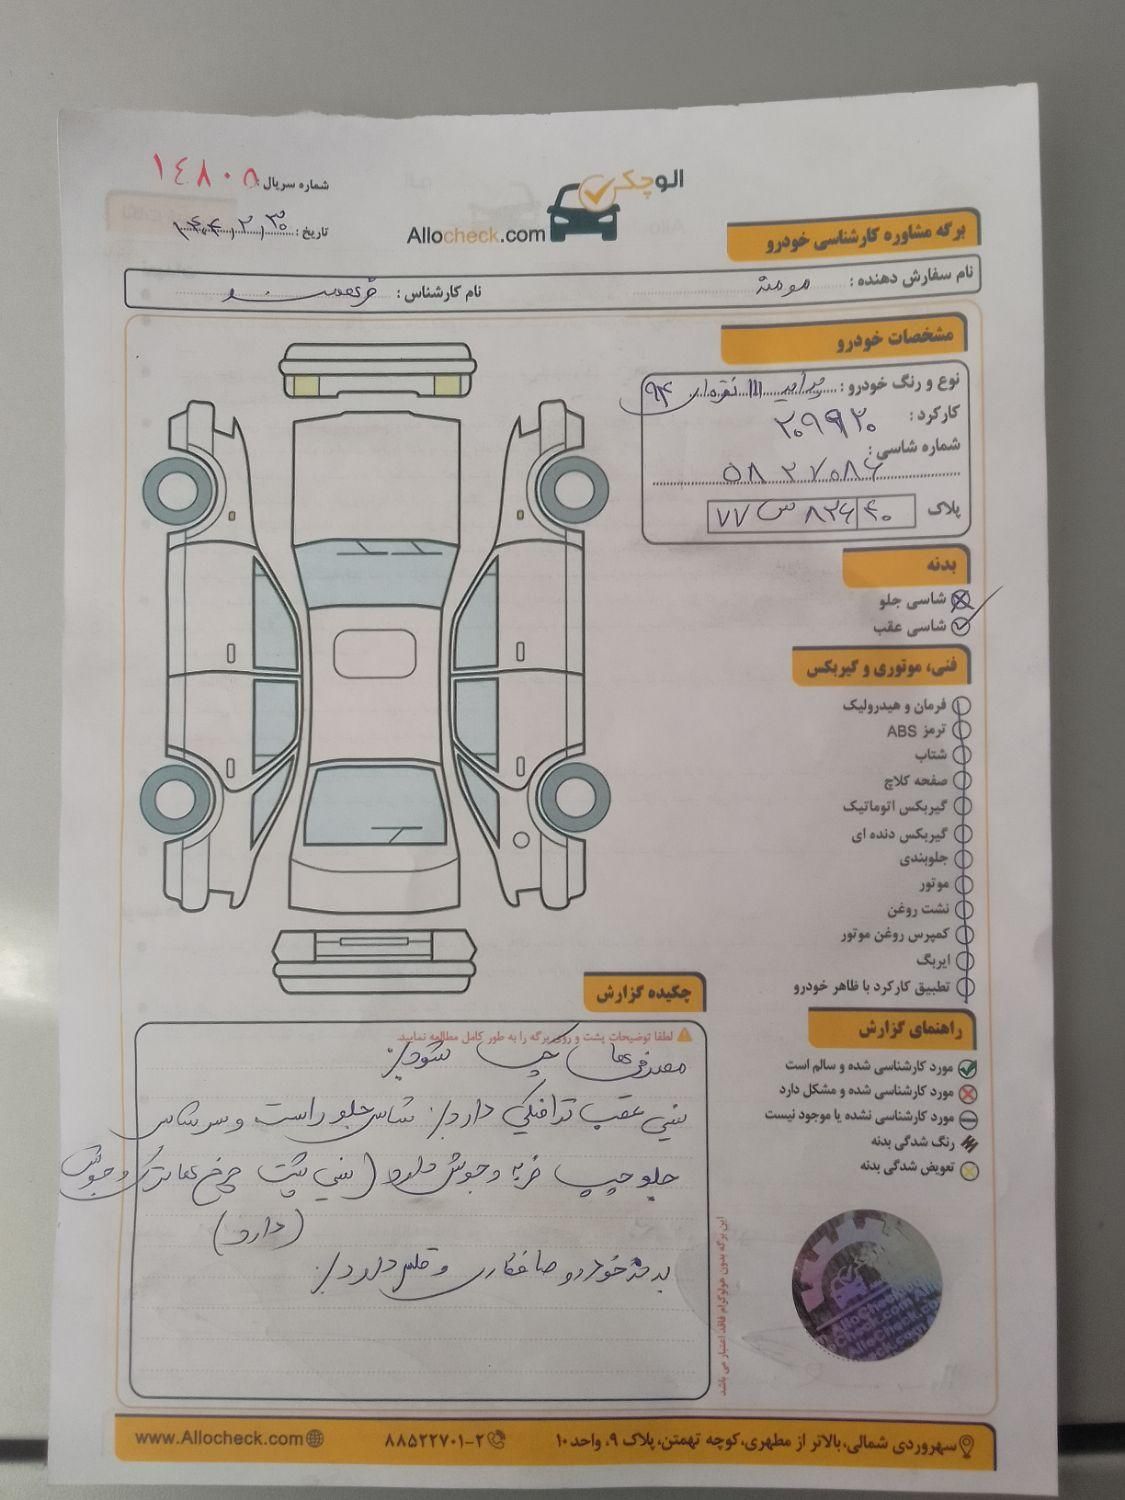 الوچک
Allocheck.com
شماره سریال: ۱۴۸۰۵
تاریخ: ۱۴۰۴/۲/۳۰
برگه مشاوره کارشناسی خودرو
نام سفارش دهنده:
نام کارشناس:
مشخصات خودرو
نوع و رنگ خودرو: پراید ۱۱۱ نقره‌ای ۹۴
کارکرد: ۲۰۹۹۲۰
شماره شاسی:
۵۸۲۷۰۸۶
پلاک ۷۷ س ۸۲۶ ۴۰
بدنه
شاسی جلو
شاسی عقب
فنی، موتوری و گیربکس
فرمان و هیدرولیک
ترمز ABS
شتاب
صفحه کلاچ
گیربکس اتوماتیک
گیربکس دنده ای
جلوبندی
موتور
نشت روغن
کمپرس روغن موتور
ایربگ
تطبیق کارکرد با ظاهر خودرو
راهنمای گزارش
مورد کارشناسی شده و سالم است
مورد کارشناسی شده و مشکل دارد
مورد کارشناسی نشده یا موجود نیست
رنگ شدگی بدنه
تعویض شدگی بدنه
چکیده گزارش
لطفا توضیحات پشت و روی برگه را به طور کامل مطالعه نمایید.
مصرفی‌ها چک شود/.
سینی عقب ترافیکی دارد/. شاسی جلو راست و سر شاسی
جلو چپ ضربه و جوش دارد (سینی پشت چرخ‌ها ترک و جوش
دارد)
بدنه خودرو صافکاری و قلمی دارد/.
این برگه بدون هولوگرام فاقد اعتبار می باشد
سهروردی شمالی، بالاتر از مطهری، کوچه تهمتن، پلاک ۹، واحد ۱۰
۸۸۵۲۲۷۰۱-۲
www.Allocheck.com